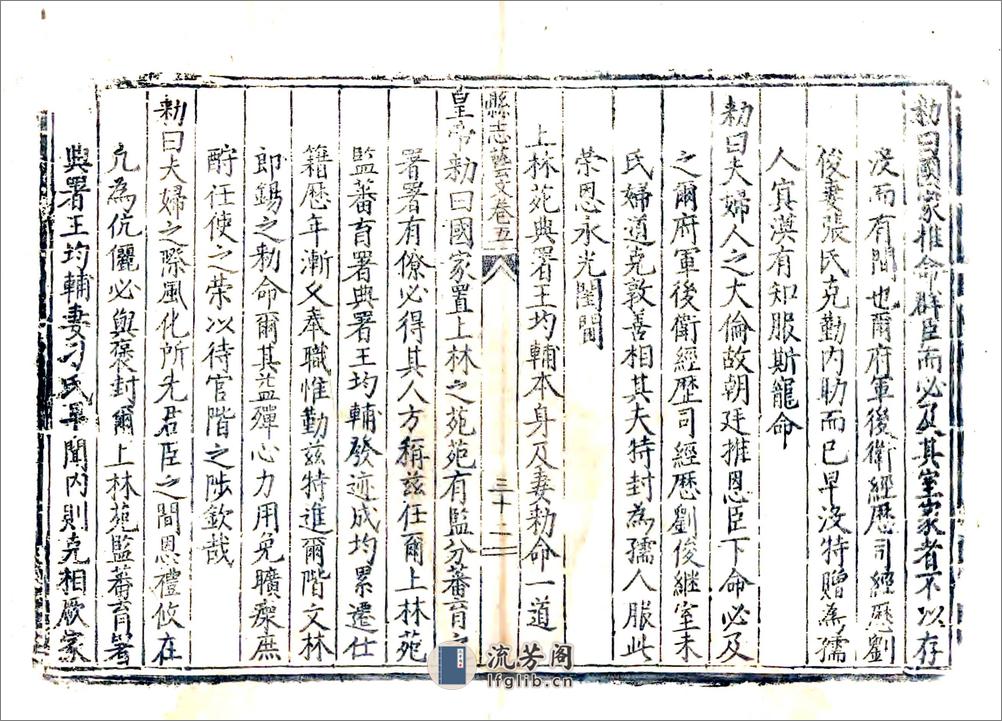 勑曰國家推命群臣而必及其室家者不以存
沒而有間也爾府軍後衛經歷司經歷劉
俊妻張氏克勤内助而已早沒特贈為孺
人㝠漠有知服斯寵命
勑曰夫婦人之大倫故朝廷推恩臣下命必及
之爾府軍後衛經歷司經歷劉俊繼室朱
氏婦道克敦善相其夫特封為孺人服此
荣恩永光閨閫
上林苑典署王均輔本身及妻勑命一道
縣志藝文卷五
三十二
皇帝勑曰國家置上林之苑苑有監分蕃育之
署署有僚必得其人方稱兹任爾上林苑
監蕃育署典署王均輔發迹成均累遷仕
籍歷年漸乆奉職惟勤兹特進爾階文林
郎錫之勑命爾其益殫心力用免曠瘝庶
酧任使之荣以待官階之陟欽哉
勑曰夫婦之際風化所先君臣之間恩禮攸在
凢為伉儷必與褒封爾上林苑監蕃育署
典署王均輔妻刁氏早聞内則克相厥家
流芳阁
lfglib.cn